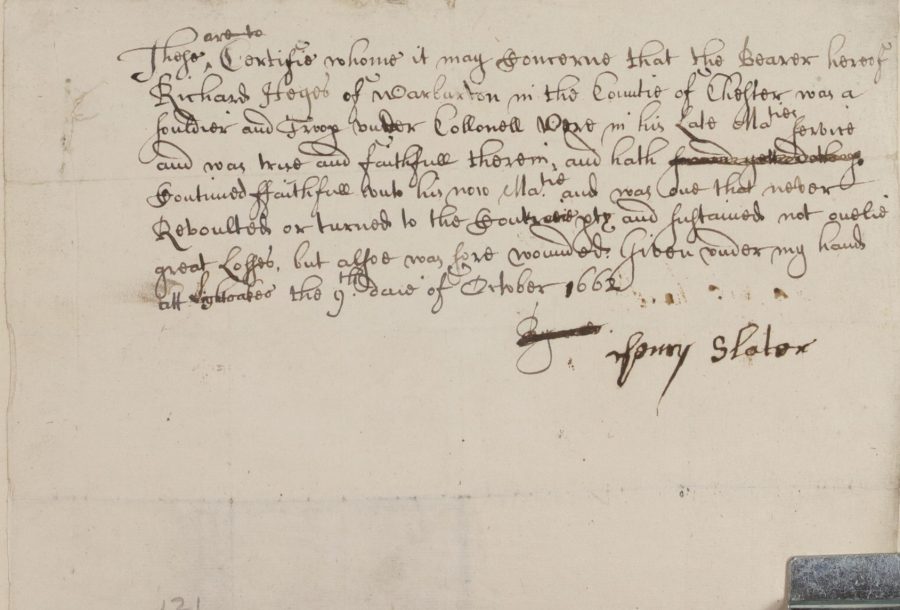 These ^are to Certifie whome it may Concerne that the Bearer hereof
Richard Heyes of Warburton in the Countie of Chester was a
souldier and Troop under Collonell Were in his Late Maties service
and was true and faithfull therein, and hath
Continued ffaithfull unto his now Matie. and was one that never
Revoulted or turned to the Contrarie pty and sustained not onelie
great Losses, but alsoe was sore wounded. Given under my hand
att Lightoakes the 9th. daie of October 1662
Henry Slater
121